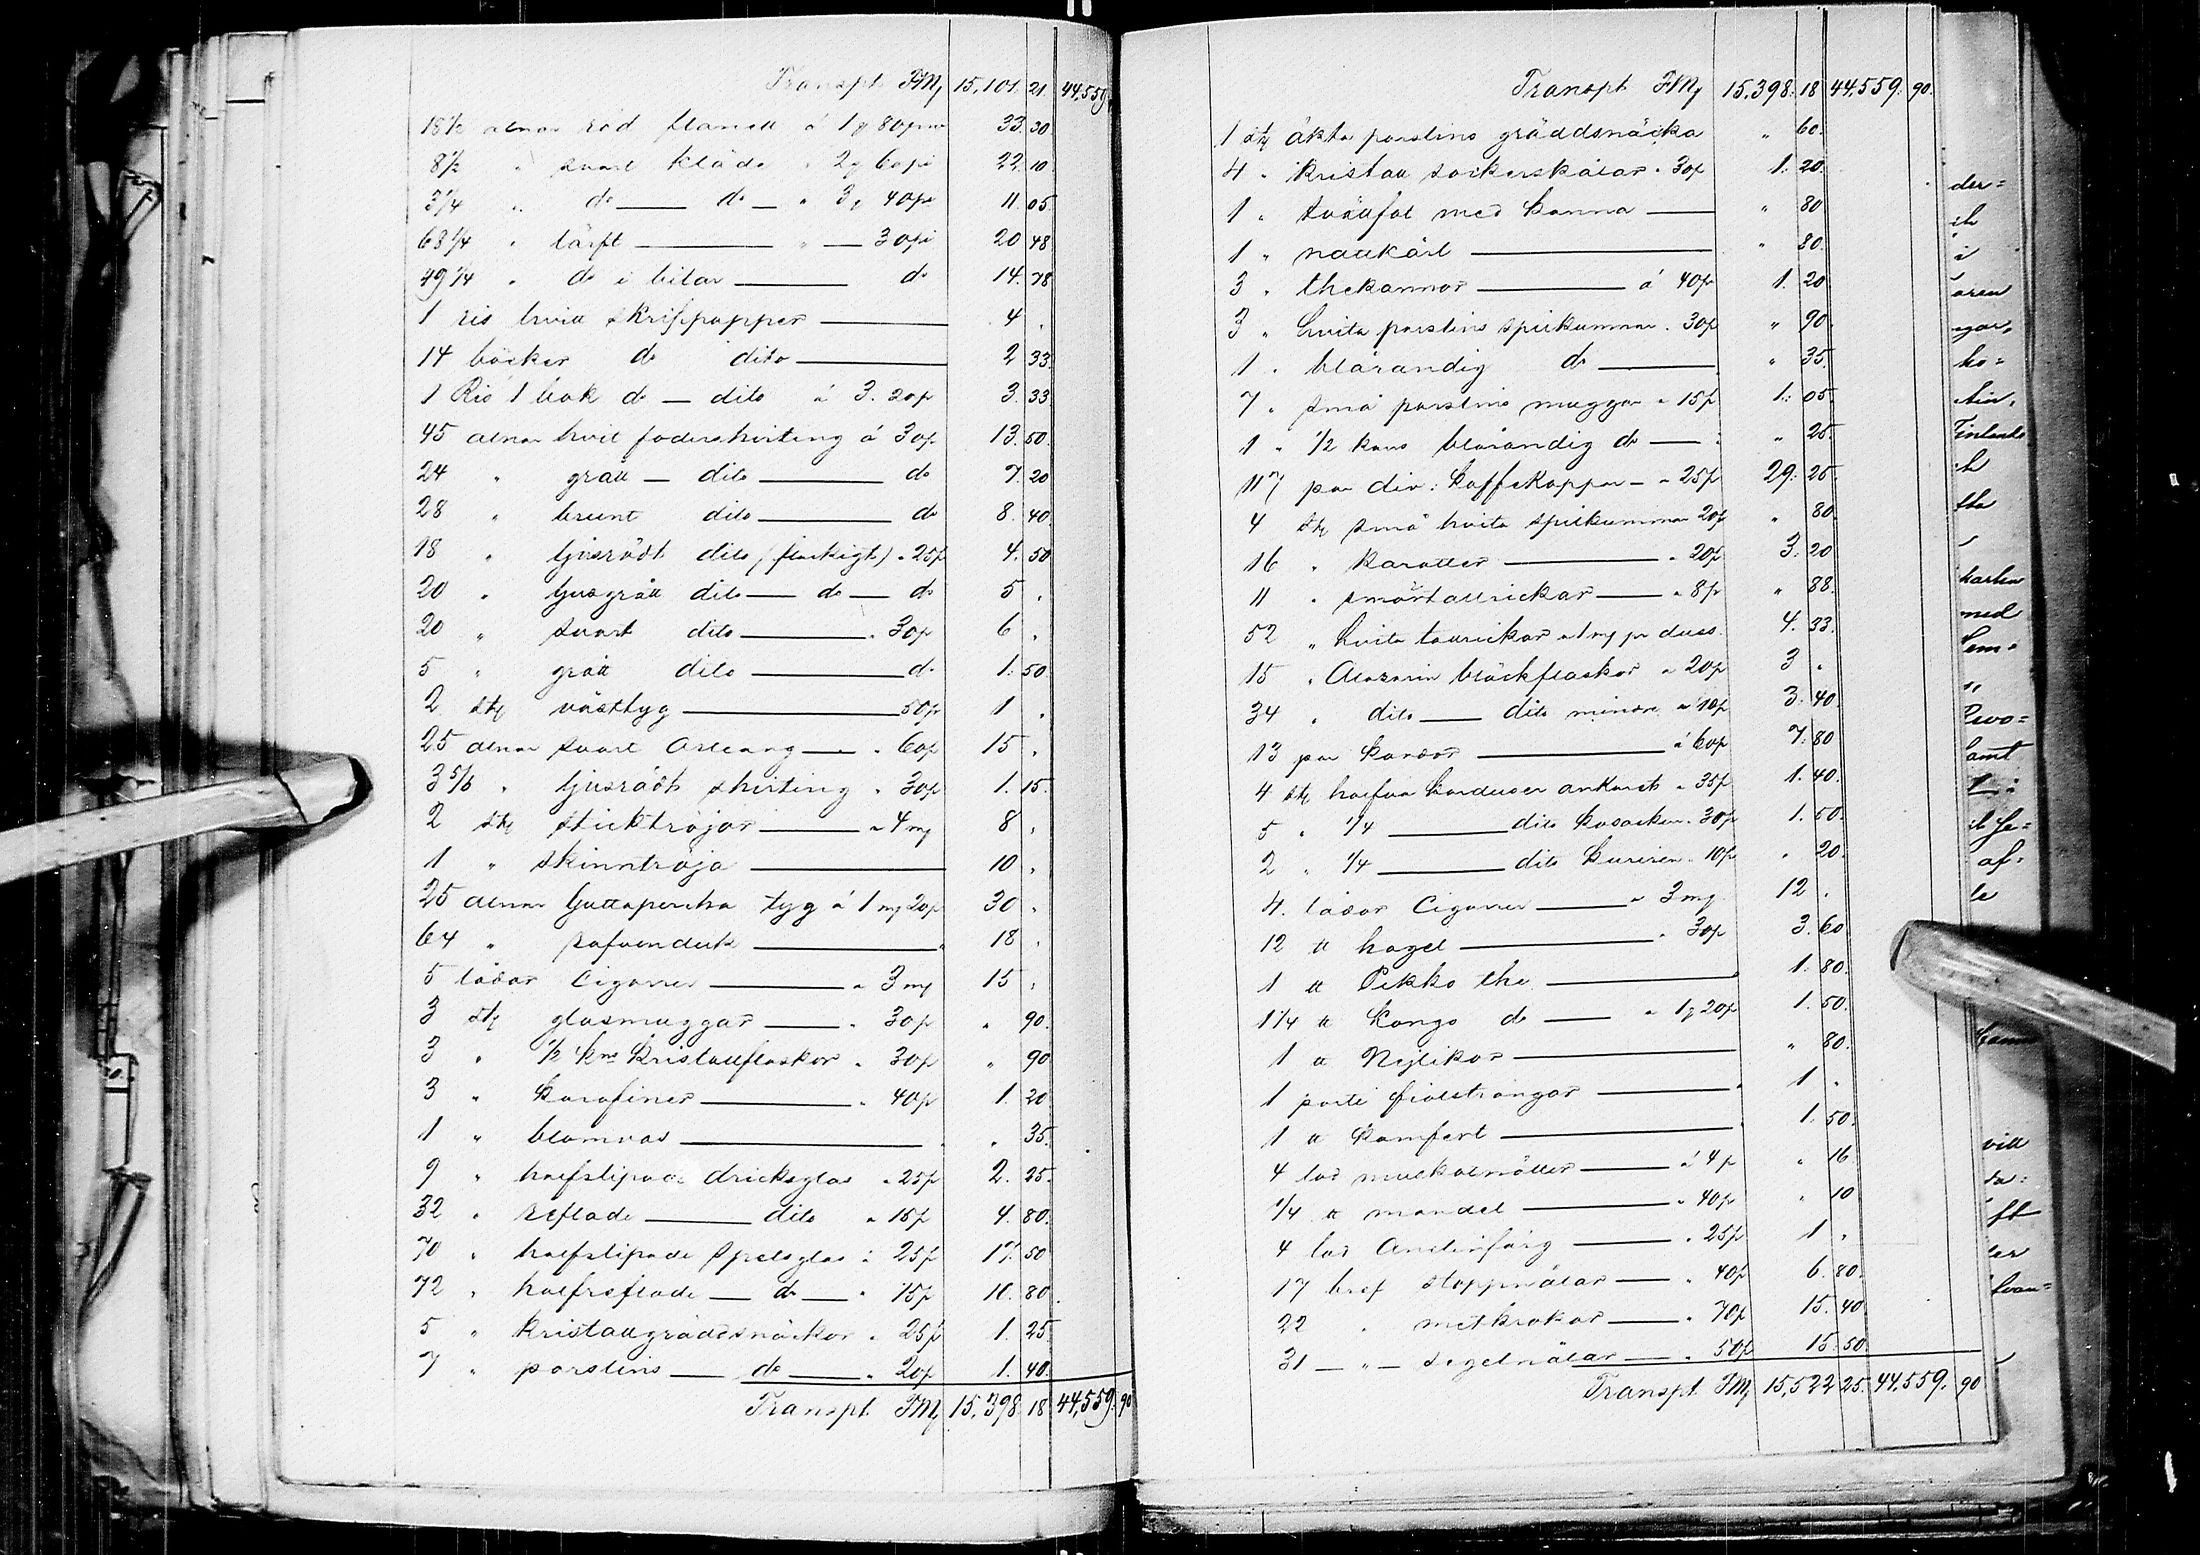 Transpt FMk 15,101. 21. 44,559.
18 1/2 alnar röd flanell á 1 g 80 pni 33. 30.
8 1/2 " svart kläde " 2 g 60 pi 22. 10.
3 1/4 " do do " 3 g 40 pi 11. 05
68 1/4 " lärft " 30 pi 20 48
49 1/4 " do i bitar do 14. 78
1 ris hvitt skrifpapper 4 "
14 böcker do dito 2 33.
1 Ris 1 bok do dito á 3. 20 p 3. 33
45 alnar hvit foderskirting á 30 p 13. 50.
24 " grått dito do 7. 20
28 " brunt dito do 8. 40.
18 " ljusrödt dito (fläckigt) " 25 p 4. 50
20 " ljusgrått dito do do 5 "
20 " svart dito " 30 p 6 "
5 " grått dito do 1. 50.
2 stk västtyg 50 p 1 "
25 alnar svart Orleang " 60 p 15 "
3 5/6 " ljusrödt skirting " 30 p 1. 15.
2 stk sticktröjor " 4 mk 8 "
1 " skinntröja 10 "
25 alnar Guttapercha tyg á 1 mk 20 p 30 "
64 " rafvenduk 18 "
5 lådor Cigarrer " 3 mk 15 "
3 stk glasmuggar " 30 p " 90.
3 " 1/2 kns Kristallflaskor " 30 p " 90
3 " Karafiner " 40 p 1. 20
1 " blomvas " 35.
9 " halfslipade dricksglas " 25 p 2. 25.
32 " reflade dito " 15 p 4. 80.
70 " halfslipade spetsglas " 25 p 17. 50
72 " halfreflade do " 15 p 10. 80.
5 " Kristallgräddsnäckor " 25 p 1. 25
7 " porslins do " 20 p 1. 40.
Transpt FMk 15,398. 18 44,559. 90
Transpt FMk 15,398. 18 44,559. 90.
1 stk äkta porslins gräddsnäcka " 60.
4 " Kristall sockerskålar " 30 p 1. 20.
1 " tvättfat med kanna " 80
1 " nattkärl " 80.
3 " thekannor á 40 p 1. 20
3 " hvita porslins spilkummar " 30 p " 90.
1 " blårandig do " 35.
7 " små porslins muggar " 15 p 1. 05.
1 " 1/2 kans blårandig do " 25.
117 par div: kaffekoppar " 25 p 29. 25.
4 stk små hvita spilkummar 20 p " 80.
16 " Karotter " 20 p 3. 20
11 " smörtallrickar " 8 p " 88.
52 " hvita tallrickar " 1 mk pr duss. 4. 33.
15 " Alazarin bläckflaskor " 20 p 3 "
34 " dito dito mindre " 10 p 3. 40.
13 par kardor á 60 p 7. 80
4 stk halfva karduser ankarst " 35 p 1. 40.
5 " 1/4 dito kosacken " 30 p 1. 50.
2 " 1/4 dito kuriren " 10 p " 20.
4. lådor Cigarrer " 3 mk 12 "
12 ℔ hagel " 30 p 3. 60
1 ℔ Pekko the 1. 80.
1 1/4 ℔ Kongo do " 1 g 20 p 1. 50.
1 ℔ Nejlikor " 80.
1 parti fiolsträngar 1 "
1 ℔ kamfert 1. 50.
4 lod muskotnötter á 4 p " 16
1/4 ℔ mandel " 40 p " 10
4 lod Anilinfärg " 25 p 1 "
17 bref stoppnålar " 40 p 6. 80.
22 " metkrokar " 70 p 15. 40
31 " segelnålar " 50 p 15. 50.
Transpt FMk 15,522 25. 44,559. 90
der=
ch
i
aren
ko=
Finlands
ch
med
samt
af=
le
vill
ft